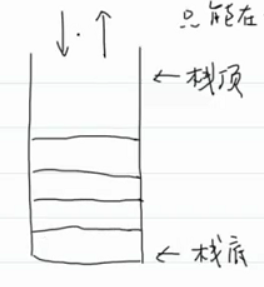 只能在
← 栈顶
← 栈底